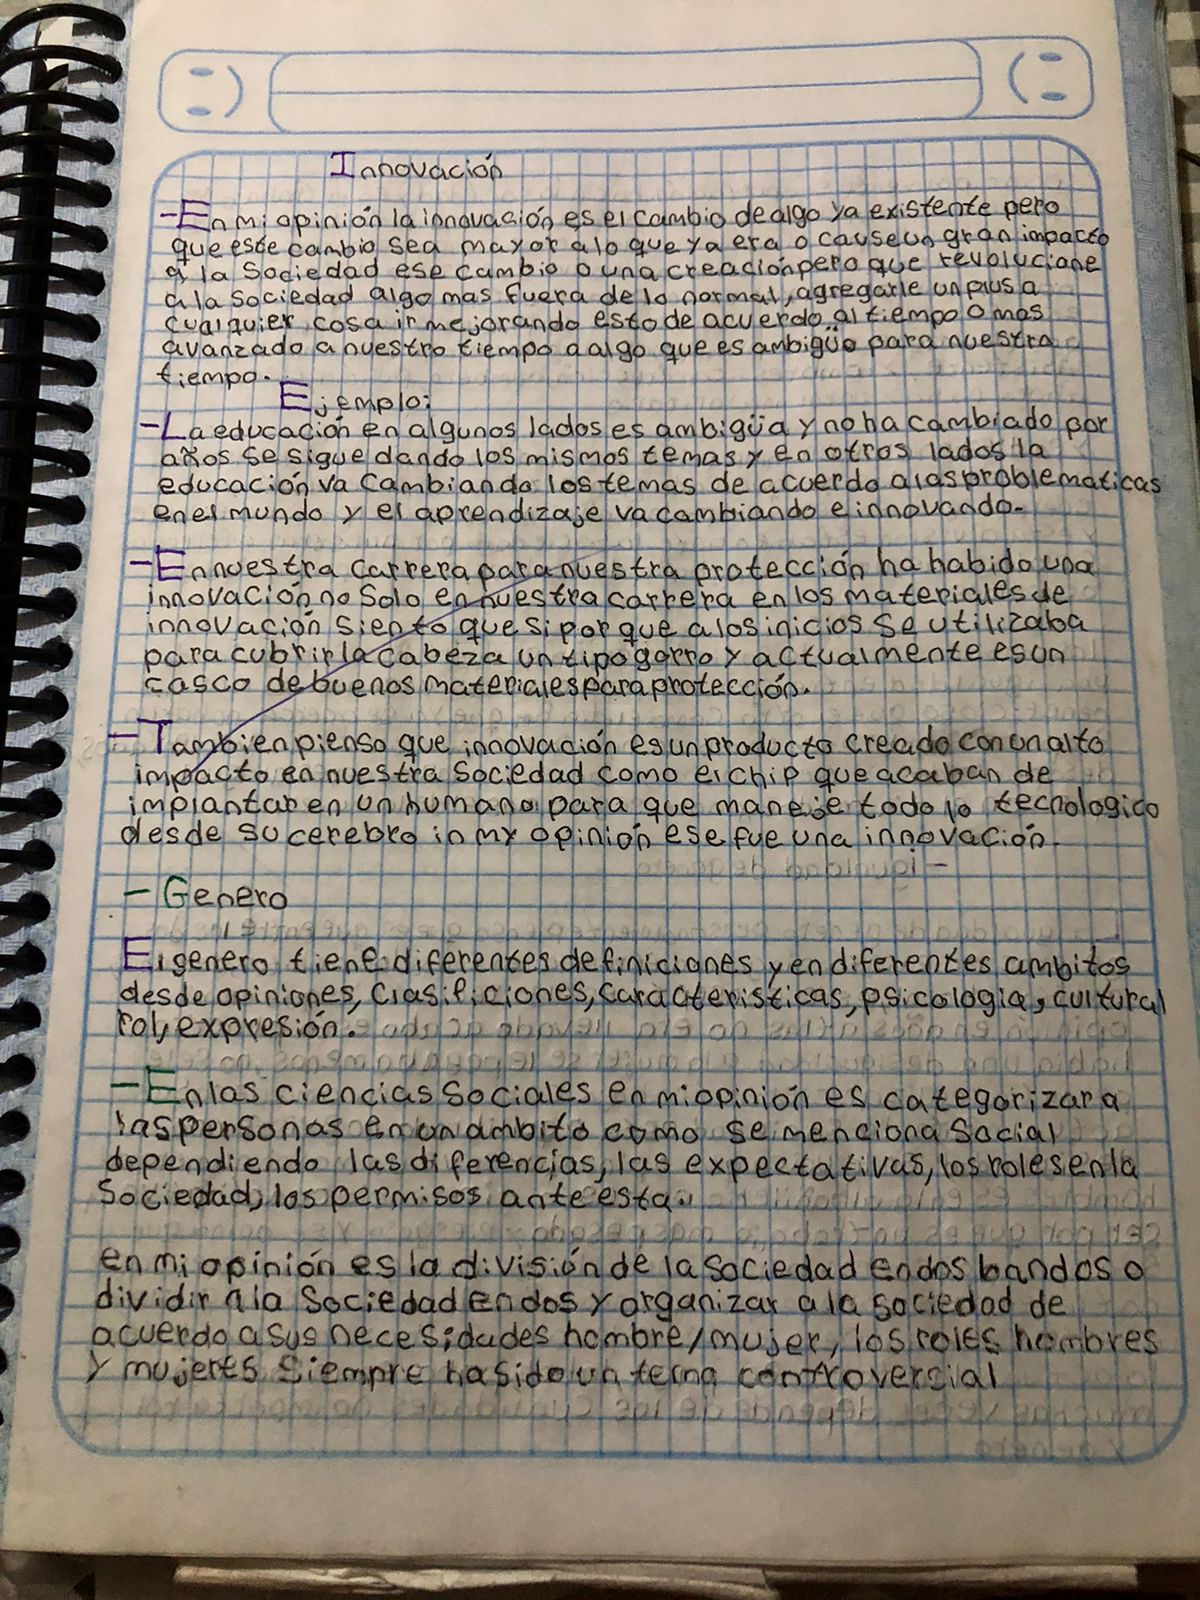 Innovación
-En mi opinión la innovación es el cambio de algo ya existente pero
que este cambio sea mayor a lo que ya era o cause un gran impacto
a la sociedad ese cambio o una creación pero que revolucione
a la sociedad algo mas fuera de lo normal, agregarle un plus a
cualquier cosa ir mejorando esto de acuerdo al tiempo o mas
avanzado a nuestro tiempo a algo que es ambigüo para nuestra
tiempo.
Ejemplo:
-La educación en algunos lados es ambigüa y no ha cambiado por
años se sigue dando los mismos temas y en otros lados la
educación va cambiando los temas de acuerdo a las problematicas
en el mundo y el aprendizaje va cambiando e innovando.
-En nuestra carrera para nuestra protección ha habido una
innovación no solo en nuestra carrera en los materiales de
innovación siento que si por que a los inicios se utilizaba
para cubrir la cabeza un tipo gorro y actualmente es un
casco de buenos materiales para protección.
-Tambien pienso que innovación es un producto creado con un alto
impacto en nuestra sociedad como el chip que acaban de
implantar en un humano para que maneje todo lo tecnologico
desde su cerebro in my opinión ese fue una innovación.
-Genero
El genero tiene diferentes definiciones y en diferentes ambitos
desde opiniones, clasificiones, caracteristicas, psicologia, cultural
rol, expresión.
-En las ciencias sociales en mi opinión es categorizar a
las personas en un ambito como se menciona social
dependiendo las diferencias, las expectativas, los roles en la
sociedad, los permisos ante esta.
en mi opinión es la división de la sociedad en dos bandos o
dividir a la sociedad en dos y organizar a la sociedad de
acuerdo a sus necesidades hombre/mujer, los roles hombres
y mujeres siempre ha sido un tema controversial